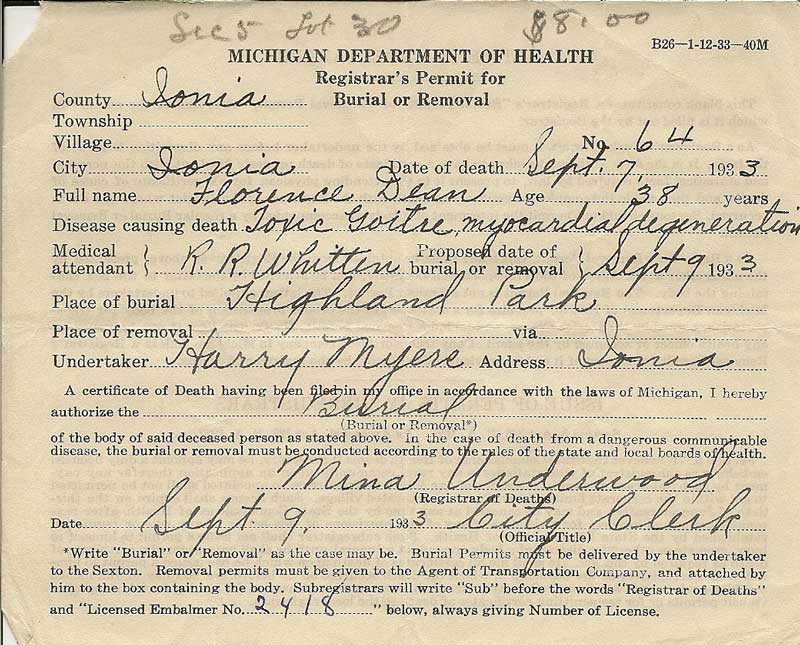 Sec 5 Lot 30 $8.00
B26—1-12-33—40M
MICHIGAN DEPARTMENT OF HEALTH
Registrar's Permit for
County Ionia Burial or Removal
Township
Village No. 64
City Ionia Date of death Sept. 7, 1933
Full name Florence Dean Age 38 years
Disease causing death Toxic Goitre, myocardial degeneration
Medical attendant } R. R. Whitten Proposed date of burial or removal } Sept 9 1933
Place of burial Highland Park
Place of removal via
Undertaker Harry Myere Address Ionia
A certificate of Death having been filed in my office in accordance with the laws of Michigan, I hereby
authorize the Burial
(Burial or Removal*)
of the body of said deceased person as stated above. In the case of death from a dangerous communicable
disease, the burial or removal must be conducted according to the rules of the state and local boards of health.
Mina Underwood
(Registrar of Deaths)
Date Sept. 9, 1933 City Clerk
(Official Title)
*Write "Burial" or "Removal" as the case may be. Burial Permits must be delivered by the undertaker
to the Sexton. Removal permits must be given to the Agent of Transportation Company, and attached by
him to the box containing the body. Subregistrars will write "Sub" before the words "Registrar of Deaths"
and "Licensed Embalmer No. 2418" below, always giving Number of License.